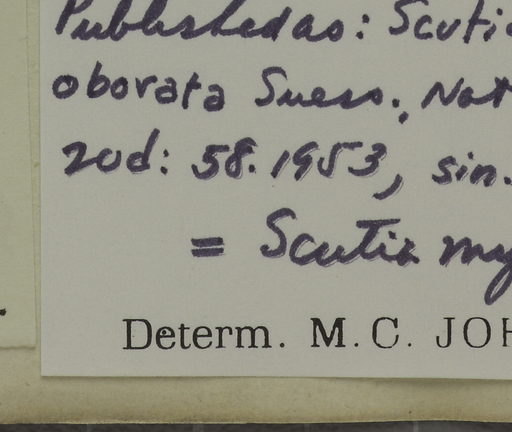 Published as: Scuti
oborata Suess., Not
zod: 58. 1953, sin.
= Scutia my
Determ. M.C. JOH